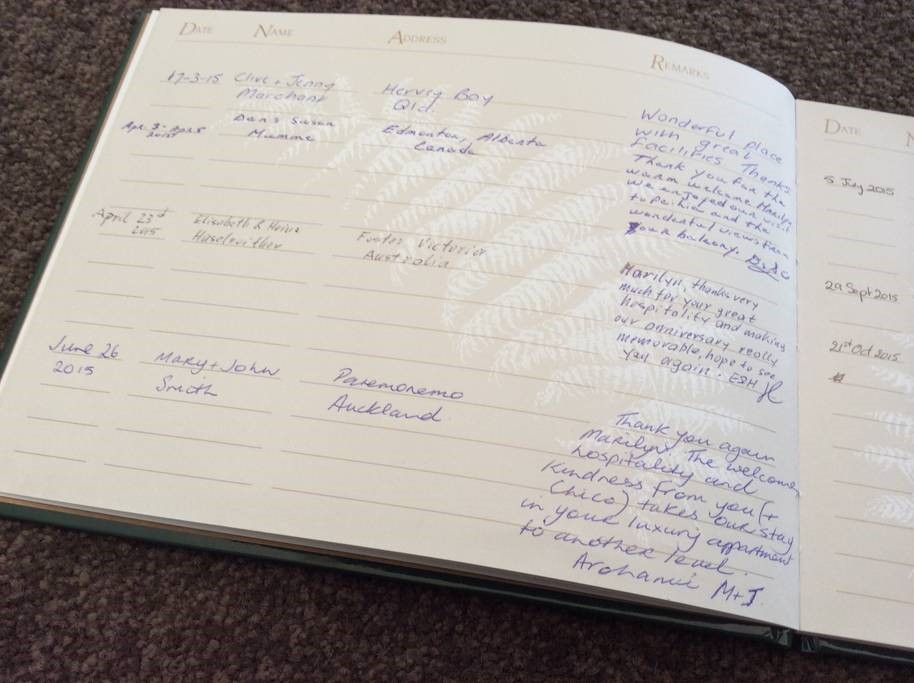 DATE NAME ADDRESS REMARKS
17-3-15 Clive + Jenny Hervey Bay
Marchant Qld
Wonderful place
with great
Facilities Thanks
Apr 3 - Apr 5 Dan & Susan Edmonton, Alberta
2015 Mumme Canada
Thank you for the
warm welcome Marilyn
we enjoyed our visit
to Paihia and the
wonderful views from
your balcony. D & S
April 23rd Elisabeth & Heinz Foster Victoria
2015 Australia
Marilyn, thanks very
much for your great
hospitality and making
our anniversary really
memorable, hope to see
you again. E&H
June 26 Mary + John Paremoremo
2015 Smith Auckland.
Thank you again
Marilyn. The welcome,
hospitality and
kindness from you (+
Chico) takes our stay
in your luxury appartment
to another level.
M+J.
DATE N
5 July 2015
29 Sept 2015
21st Oct 2015